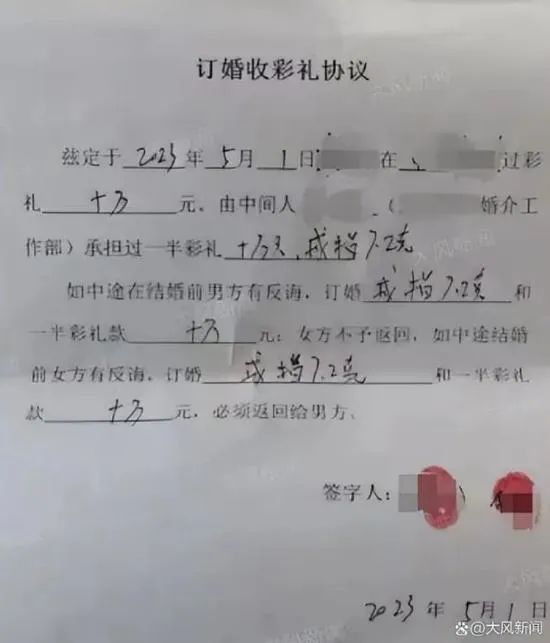 订婚收彩礼协议
兹定于 2023 年 5 月 1 日 在 过彩
礼 十万 元。由中间人 ( 婚介工
作部) 承担过一半彩礼 十万元, 戒指7.2克
如中途在结婚前男方有反海, 订婚 戒指7.2克 和
一半彩礼款 十万 元; 女方不予返回, 如中途结婚
前女方有反海, 订婚 戒指7.2克 和一半彩礼
款 十万 元, 必须返回给男方、
签字人:
2023 年 5 月 1 日
大风新闻